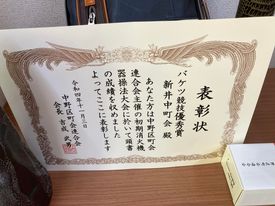 表彰状
バケツ競技優秀賞
新井中町会 殿
あなた方は中野区町会
連合会主催の初期消火機
器操法大会に於いて頭書
の成績を収めました
よってここに表彰します
令和四年十一月三日
中野区町会連合会
会長 吉成武男